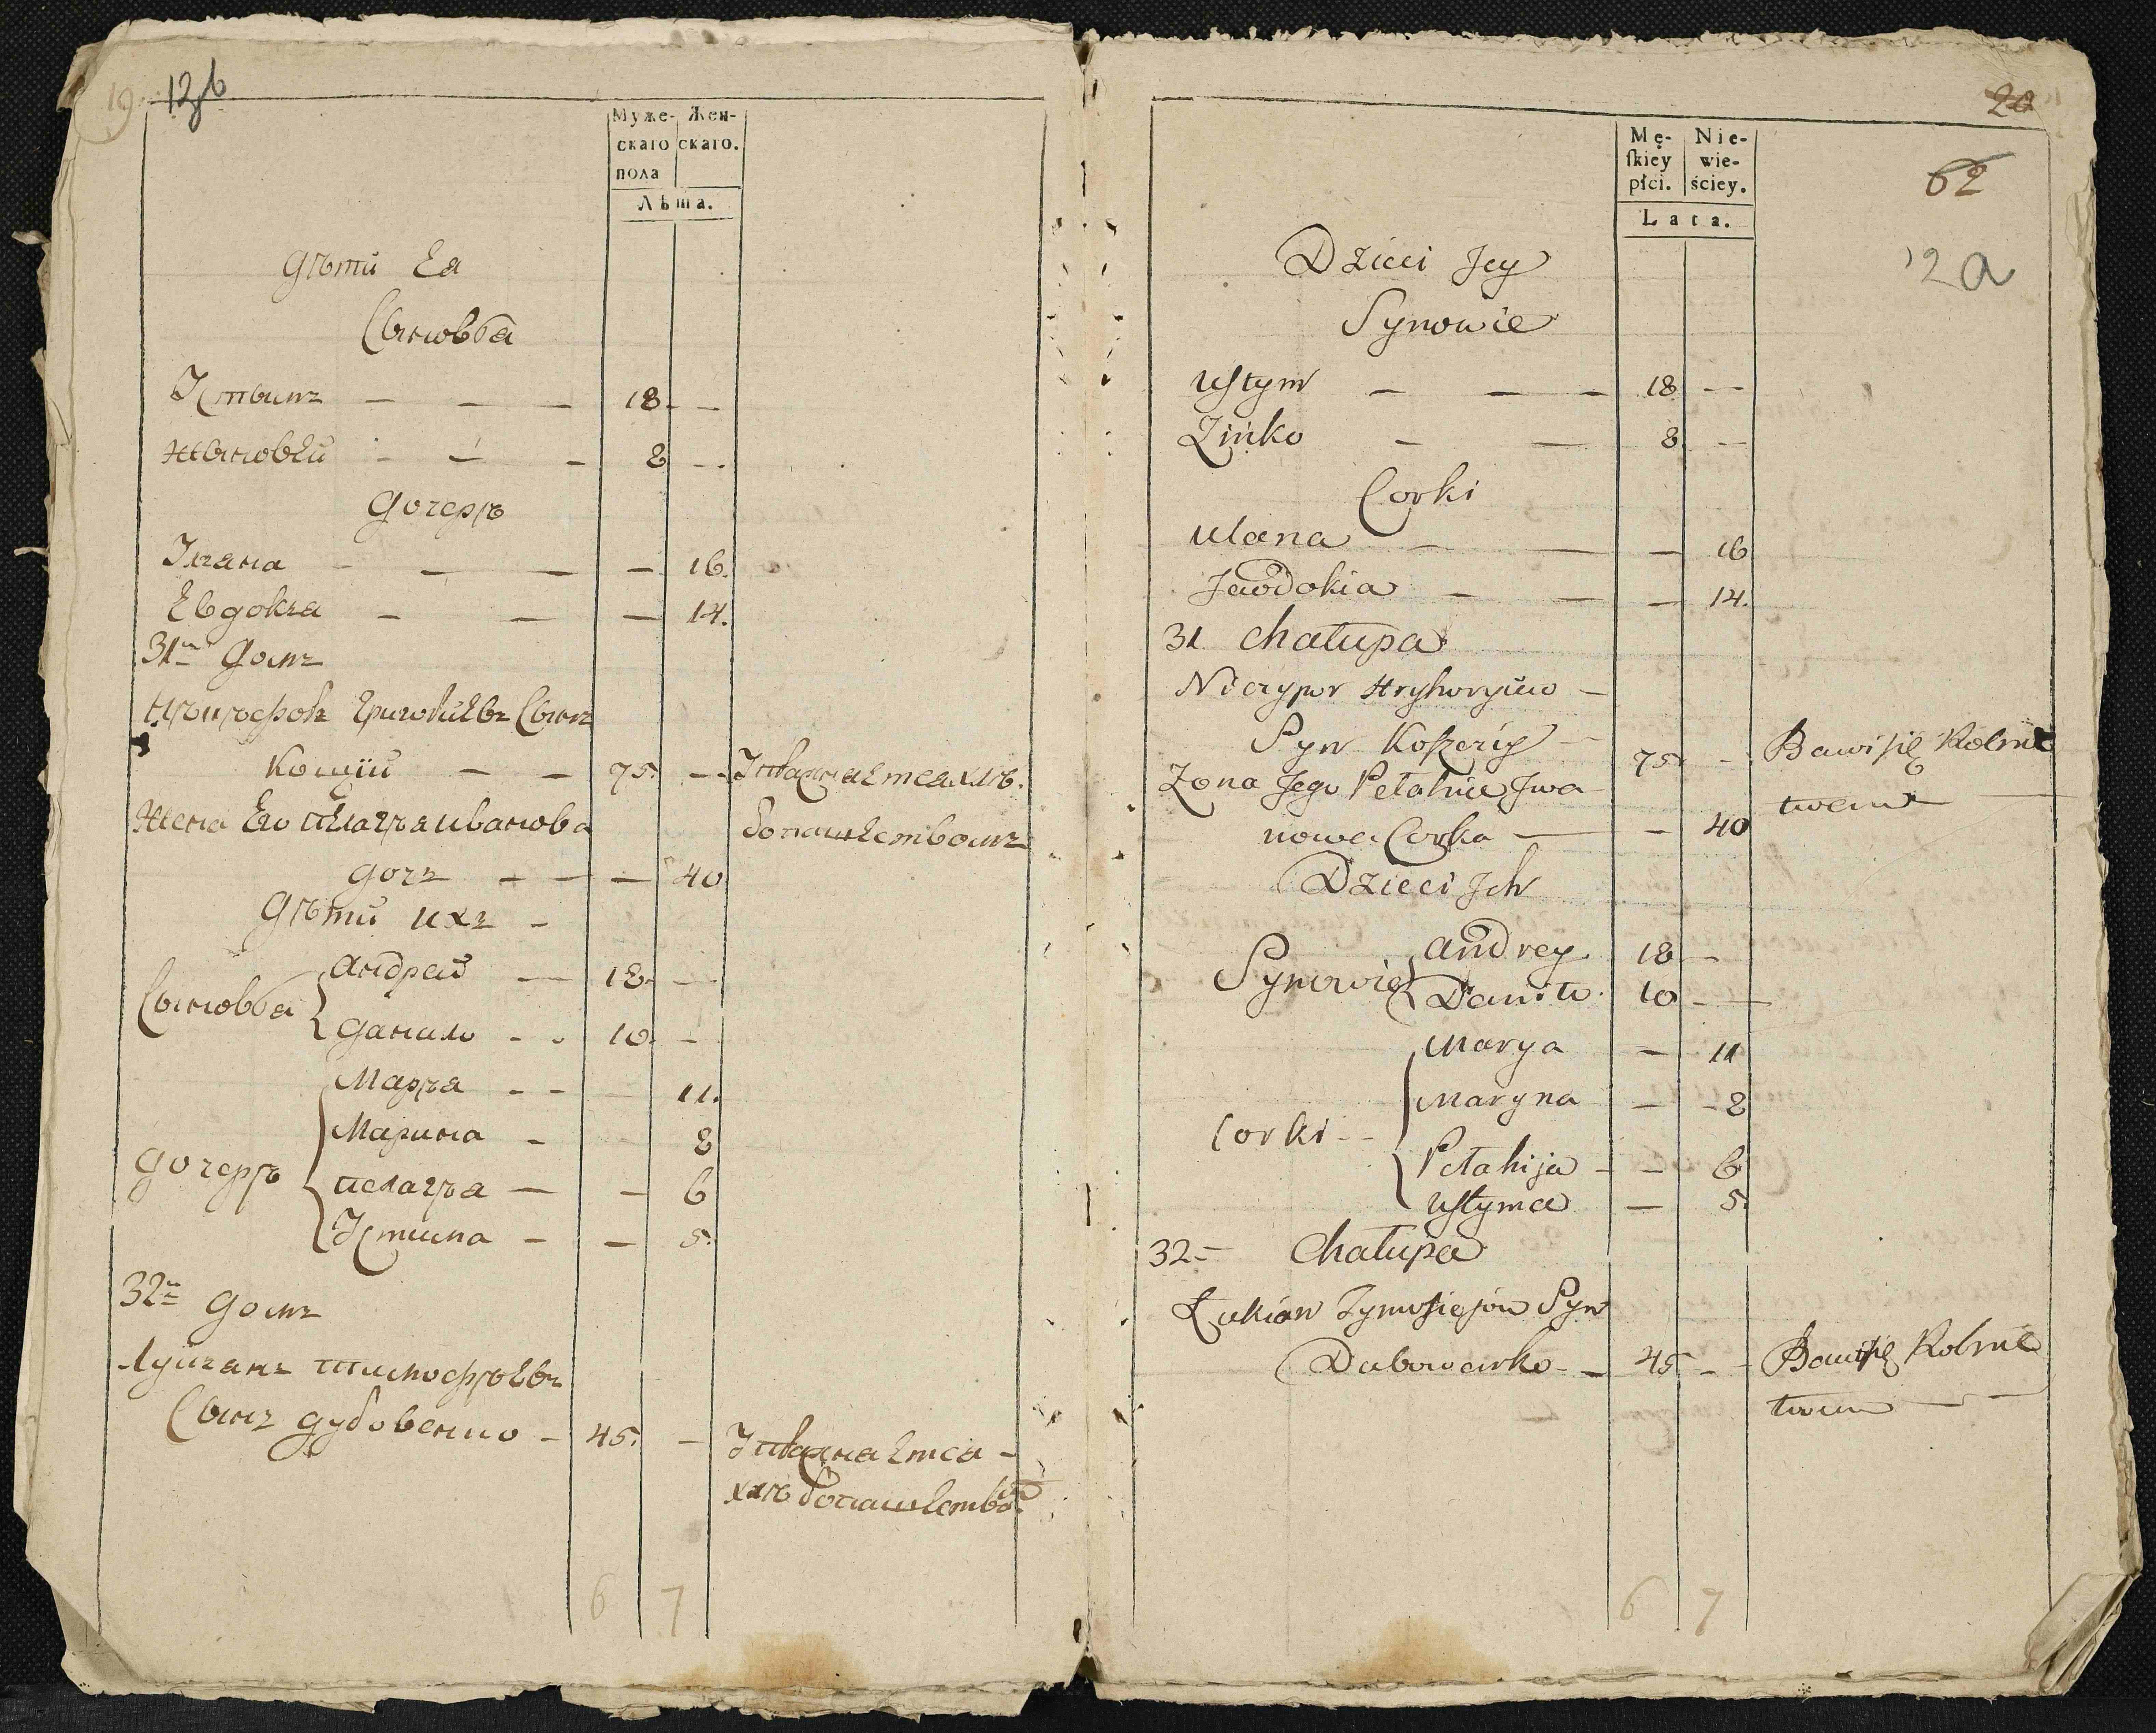 19 12b
Муже-
скаго
пола
Жен-
скаго.
Лѣта.
дѣти Ея
Сыновья
Устимъ — — — 18. —
Зѣновей — — — 8 —
дочерѣ
Уляна — — — — 16.
Евдокія — — — 14.
31й домъ
Нѣчѣфоръ Григорьевъ Сынъ
Кощій — — 75. — Упражняется хлѣ
Жена Его пелагѣя иванова
бопашествомъ
дочъ — — — 40
дѣти ихъ —
Сыновья
Андрей — 18. —
данило — — 10. —
дочерѣ
Марѣя — — 11.
Марина — 8
пелагѣя — — 6
Устима — — 5.
32й домъ
Лукіянъ тимофѣевъ
Сынъ дубовенко — 45. — Упражняется —
хлѣбопашество
6 7
20
62
12a
Mę-
ſkiey
płci.
Nie-
wie-
ściey.
Lata.
Dzieci Jey
Synowie
Ustym — — — 18 —
Zińko — — 8 —
Corki
Ulana — — — 16
Jewdokia — — — 14.
31 Chałupa
Niczypor Hryhoryiew —
Syn Koszczij — 75. — Bawi się Rolnic
Zona Jego Pełahia Jwa
twem
nowa Corka — — 40
Dzieci Jch
Synowie
Andrey 18 —
Daniło. 10 —
Corki —
Marya — 11
Maryna — 8
Pełahija — — 6
Ustyma — 5.
32 — Chałupa
Łukian Tymofiejów Syn
Dubowenko — 45 — Bawi się Rolnic
twem —
6 7